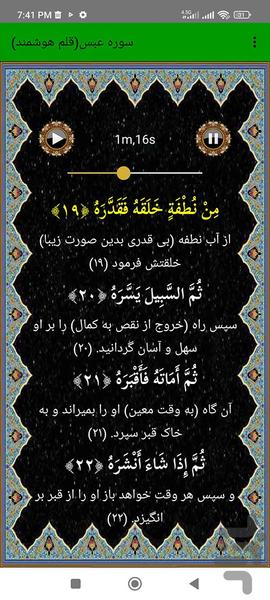 7:41 PM
سوره عبس(قلم هوشمند)
1m,16s
مِنْ نُطْفَةٍ خَلَقَهُ فَقَدَّرَهُ ﴿۱۹﴾
از آب نطفه (بی قدری بدین صورت زیبا)
خلقتش فرمود (۱۹)
ثُمَّ السَّبِيلَ يَسَّرَهُ ﴿۲۰﴾
سپس راه (خروج از نقص به کمال) را بر او
سهل و آسان گردانید. (۲۰)
ثُمَّ أَمَاتَهُ فَأَقْبَرَهُ ﴿۲۱﴾
آن گاه (به وقت معین) او را بمیراند و به
خاک قبر سپرد. (۲۱)
ثُمَّ إِذَا شَاءَ أَنْشَرَهُ ﴿۲۲﴾
و سپس هر وقت خواهد باز او را از قبر بر
انگیزد. (۲۲)